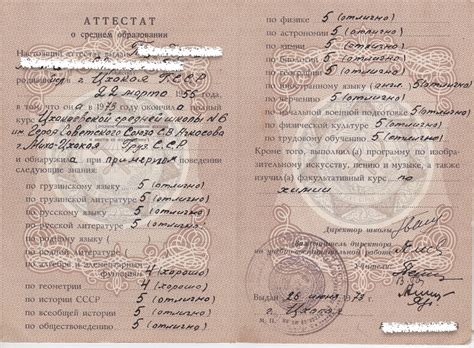 АТТЕСТАТ
о среднем образовании
Настоящий аттестат выдан
г. Цхакая ГССР
22 марта 1956 года
в том что она в 1973 году окончила полный
курс Цхакаевской средней школы N6
им. Героя Советского Союза
г. Миха-Цхакая Груз. ССР
и обнаружила при примерном поведении
следующие знания:
по грузинскому языку 5 (отлично)
по грузинской литературе 5 (отлично)
по русскому языку 5 (отлично)
по русской литературе 5 (отлично)
по родному языку (
по родной литературе
по алгебре и элементарным
функциям 4 (хорошо)
по геометрии 4 (хорошо)
по истории СССР 5 (отлично)
по всеобщей истории 5 (отлично)
по обществоведению 5 (отлично)
по физике 5 (отлично)
по астрономии 5 (отлично)
по химии 5 (отлично)
по биологии 5 (отлично)
по географии 5 (отлично)
по иностранному языку (англ.) 5 (отлично)
по начальной военной подготовке 5 (отлично)
по физической культуре 5 (отлично)
по трудовому обучению 5 (отлично)
Кроме того, выполнил(а) программу по изобразительному
искусству, пению и музыке, а также
изучил(а) факультативный курс по
химии
Директор школы
Заместитель директора
по учебно-воспитательной работе
Учителя:
Выдан 26 июня 1973 г.
г. Цхакая
М. П.